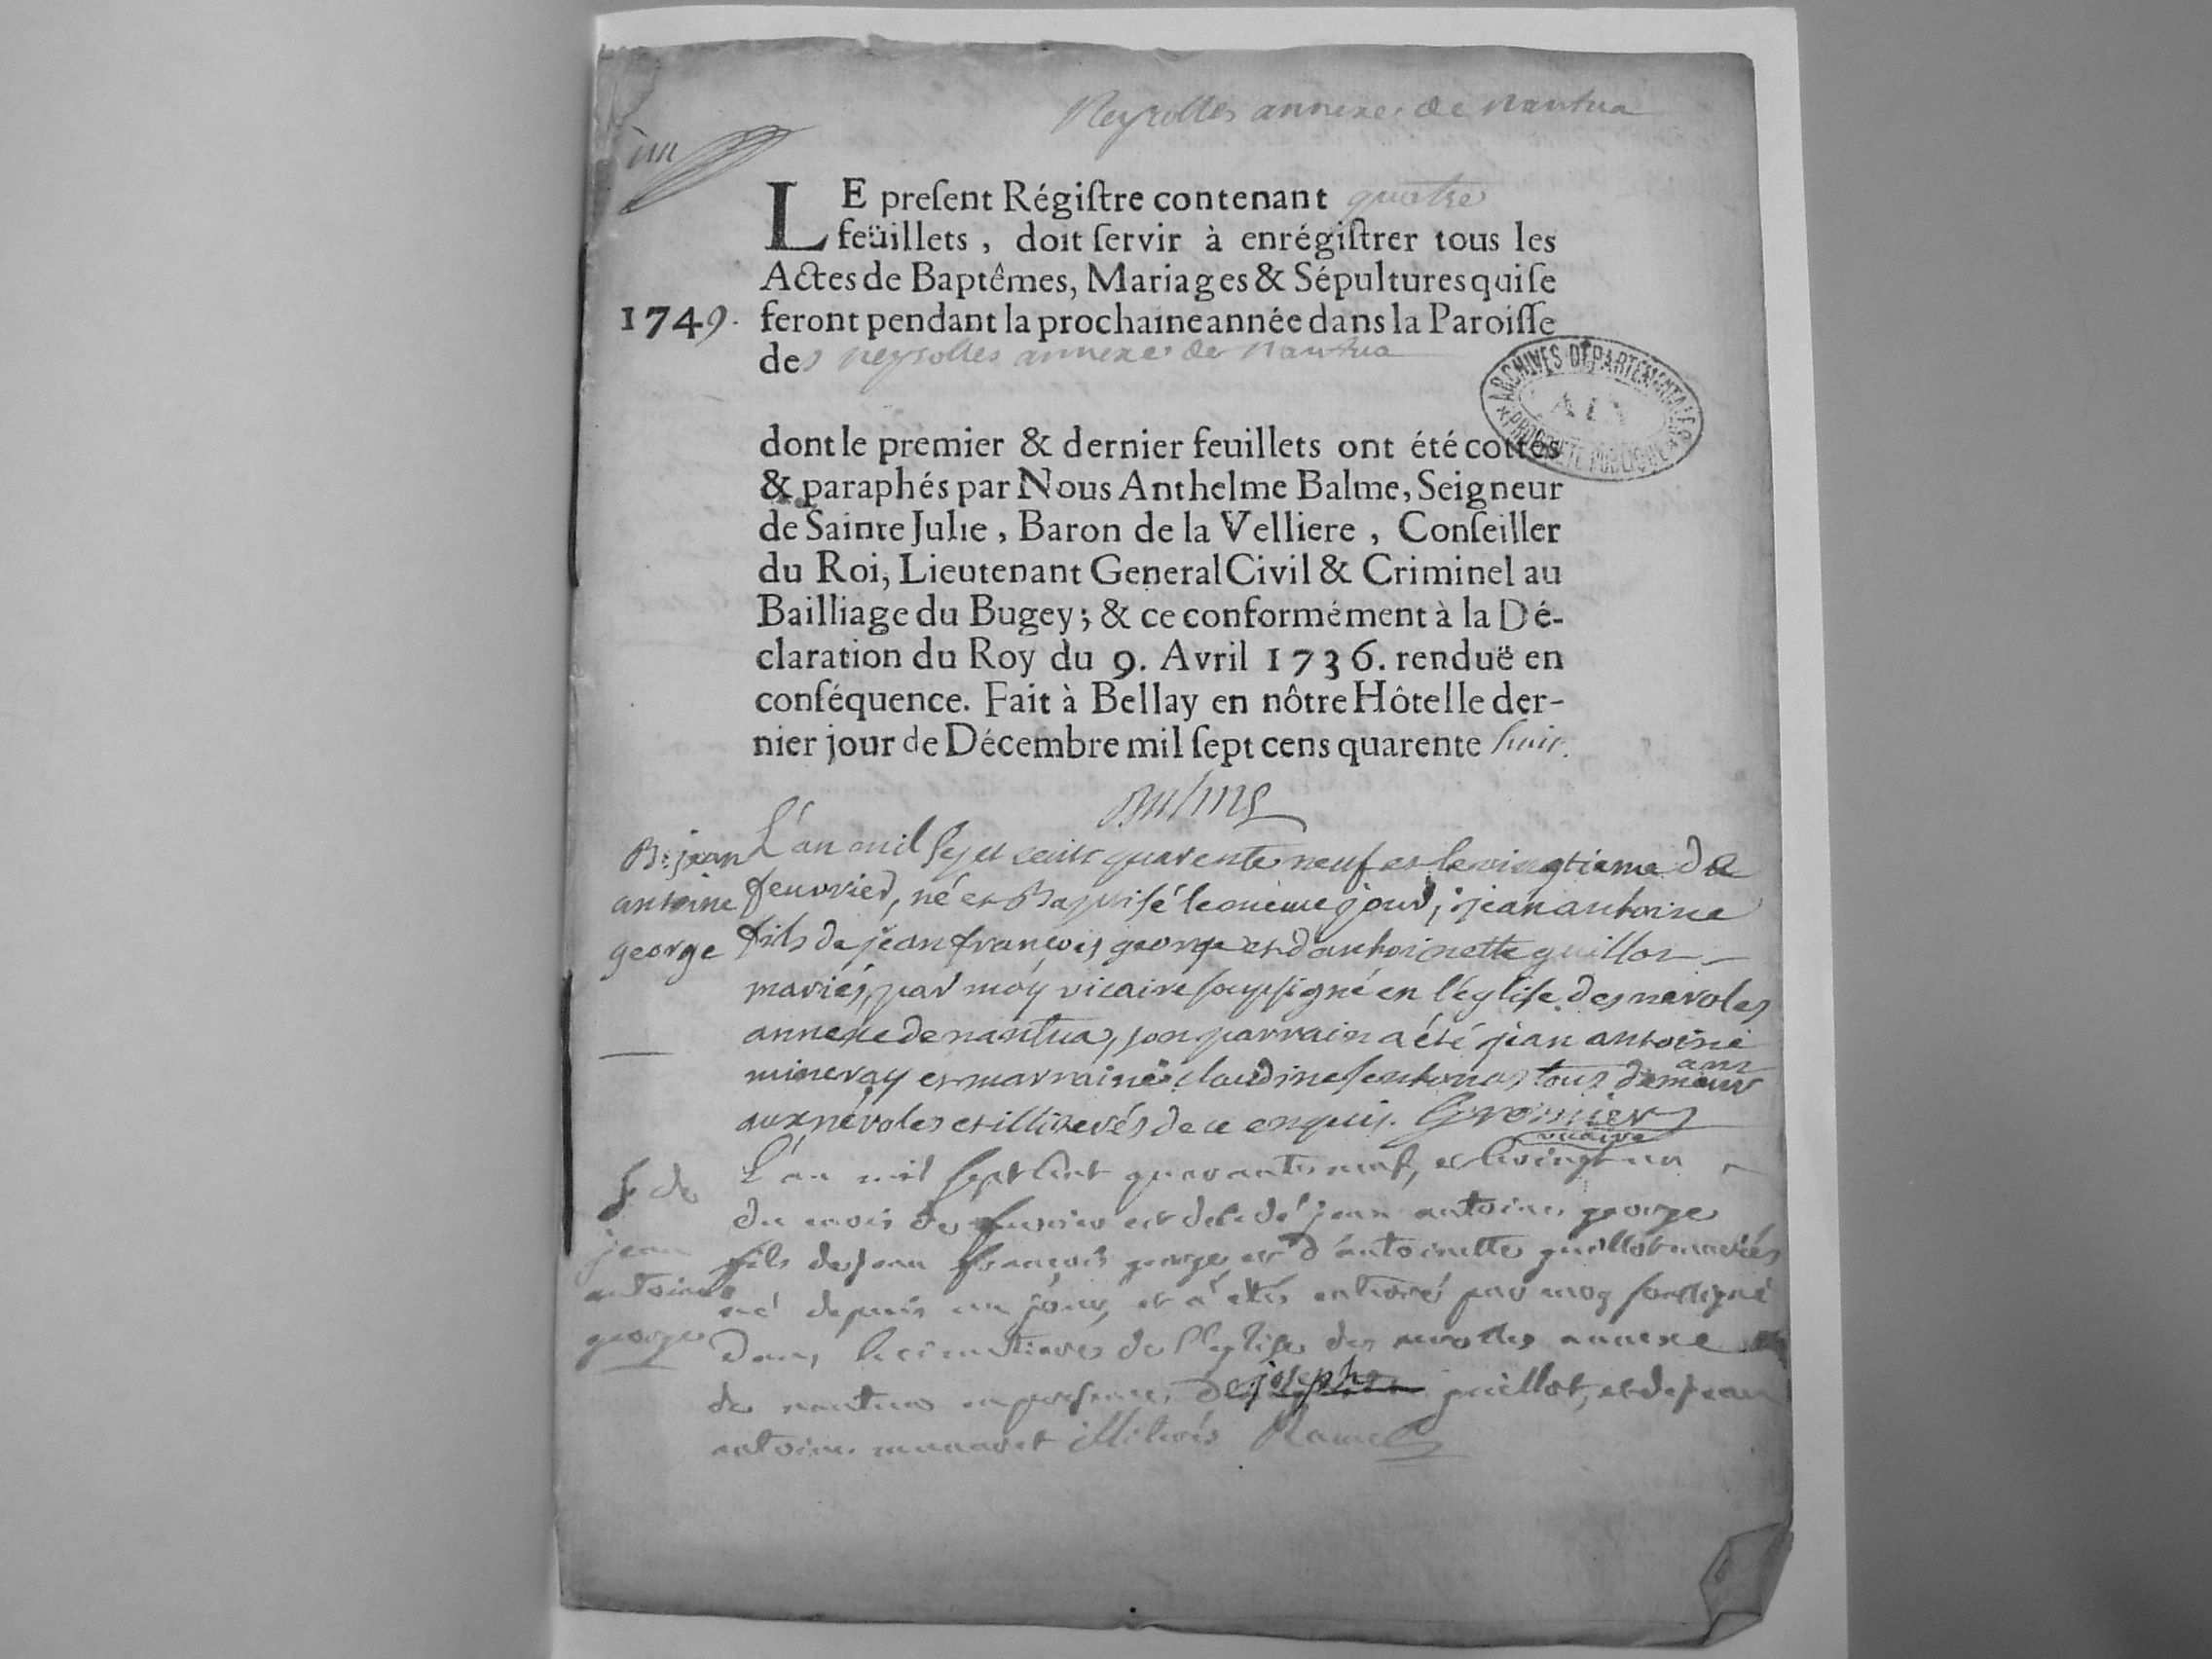 Neyrolles annexe de Nantua
un
LE preſent Régiſtre contenant quatre
feüillets, doit ſervir à enrégiſtrer tous les
Actes de Baptêmes, Mariages & Sépultures qui ſe
1749. feront pendant la prochaine année dans la Paroiſſe
des neyrolles annexe de nantua
ARCHIVES DÉPARTEMENTALES
AIN
PROPRIÉTÉ PUBLIQUE
dont le premier & dernier feuillets ont été cottés
& paraphés par Nous Anthelme Balme, Seigneur
de Sainte Julie, Baron de la Velliere, Conſeiller
du Roi, Lieutenant General Civil & Criminel au
Bailliage du Bugey; & ce conformément à la Dé-
claration du Roy du 9. Avril 1736. renduë en
conſéquence. Fait à Bellay en nôtre Hôtel le der-
nier jour de Décembre mil ſept cens quarente huit.
Balme
B: jean
antoine
george
L'an mil sept cent quarente neuf et le vingtieme de
feuvrier, né et Baptisé le meme jour, jean antoine
fils de jean françois george et d'antoinette guillot
mariés, par moy vicaire soussigné en l'église des neroles
annexe de nantua, son parrain a été jean antoine
et marraine claudine tous demeurans
aux néroles et illiterés de ce enquis. Grosnier
vicaire
S de
jean
antoine
george
L'an mil sept cent quarante neuf, et le vingt un
du mois de fevrier est decedé jean antoine george
fils de jean françois george et d'antoinette guillot mariés
né depuis un jour, et a etés enterré par moy soussigné
dans le cimetiere de l'eglise des nerolles annexe
de nantua en presence de joseph guillot, et de jean
antoine illiterés Ramel